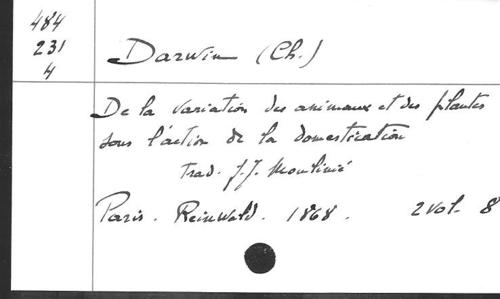 484
231
4
Darwin (Ch.)
De la variation des animaux et des plantes
sous l'action de la domestication
trad. J.J. Moulinié
Paris. Reinwald. 1868. 2 vol. 8